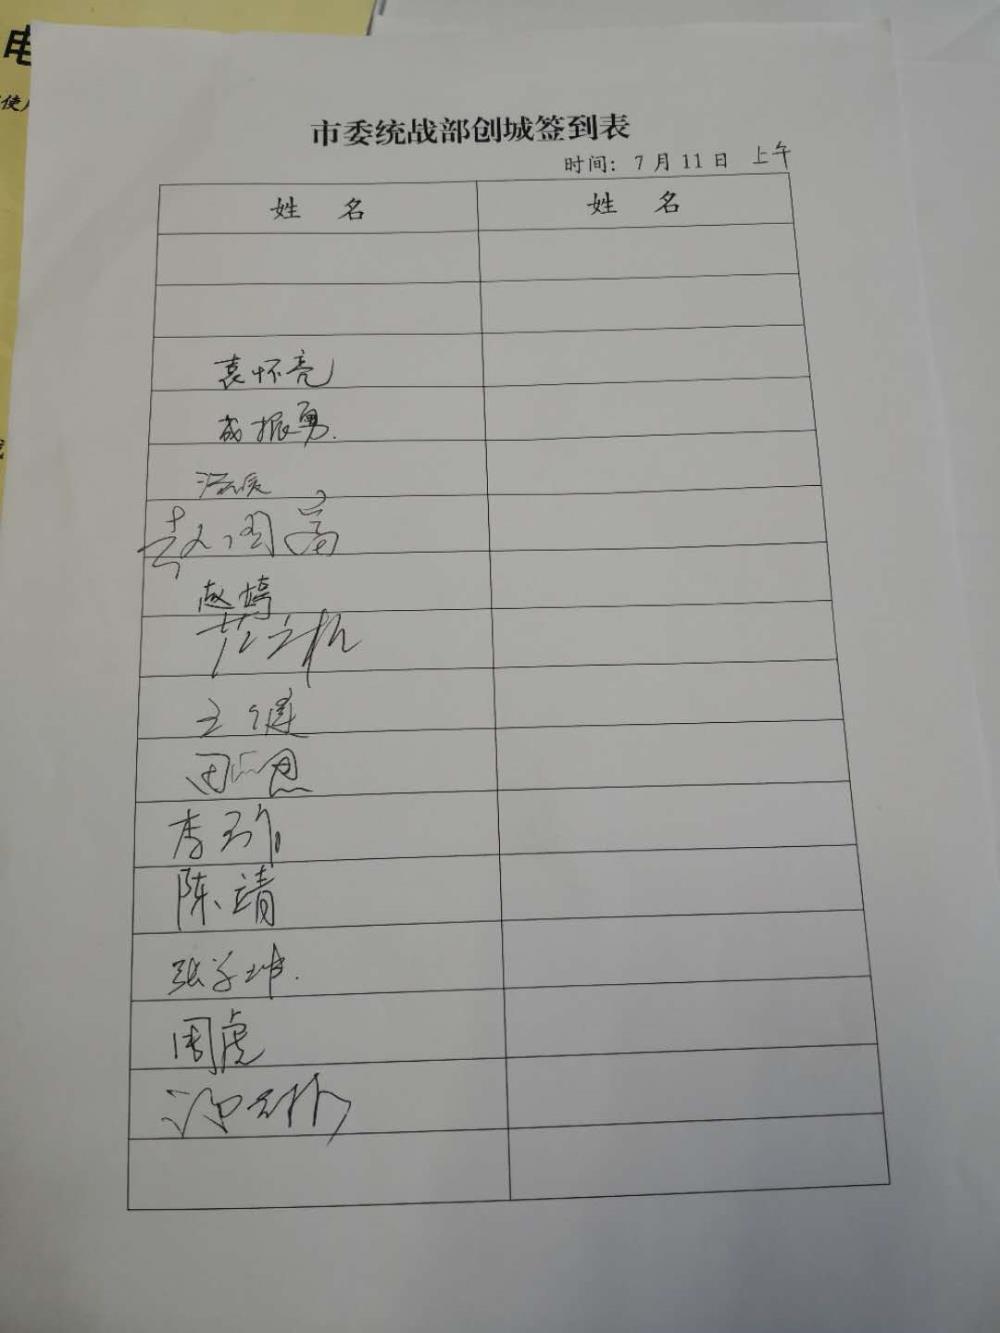 电
使
市委统战部创城签到表
时间: 7月11日 上午
姓 名 姓 名
袁怀亮
成振勇.
赵国富
赵婷
王健
李珍
陈靖
张学坤.
周虎